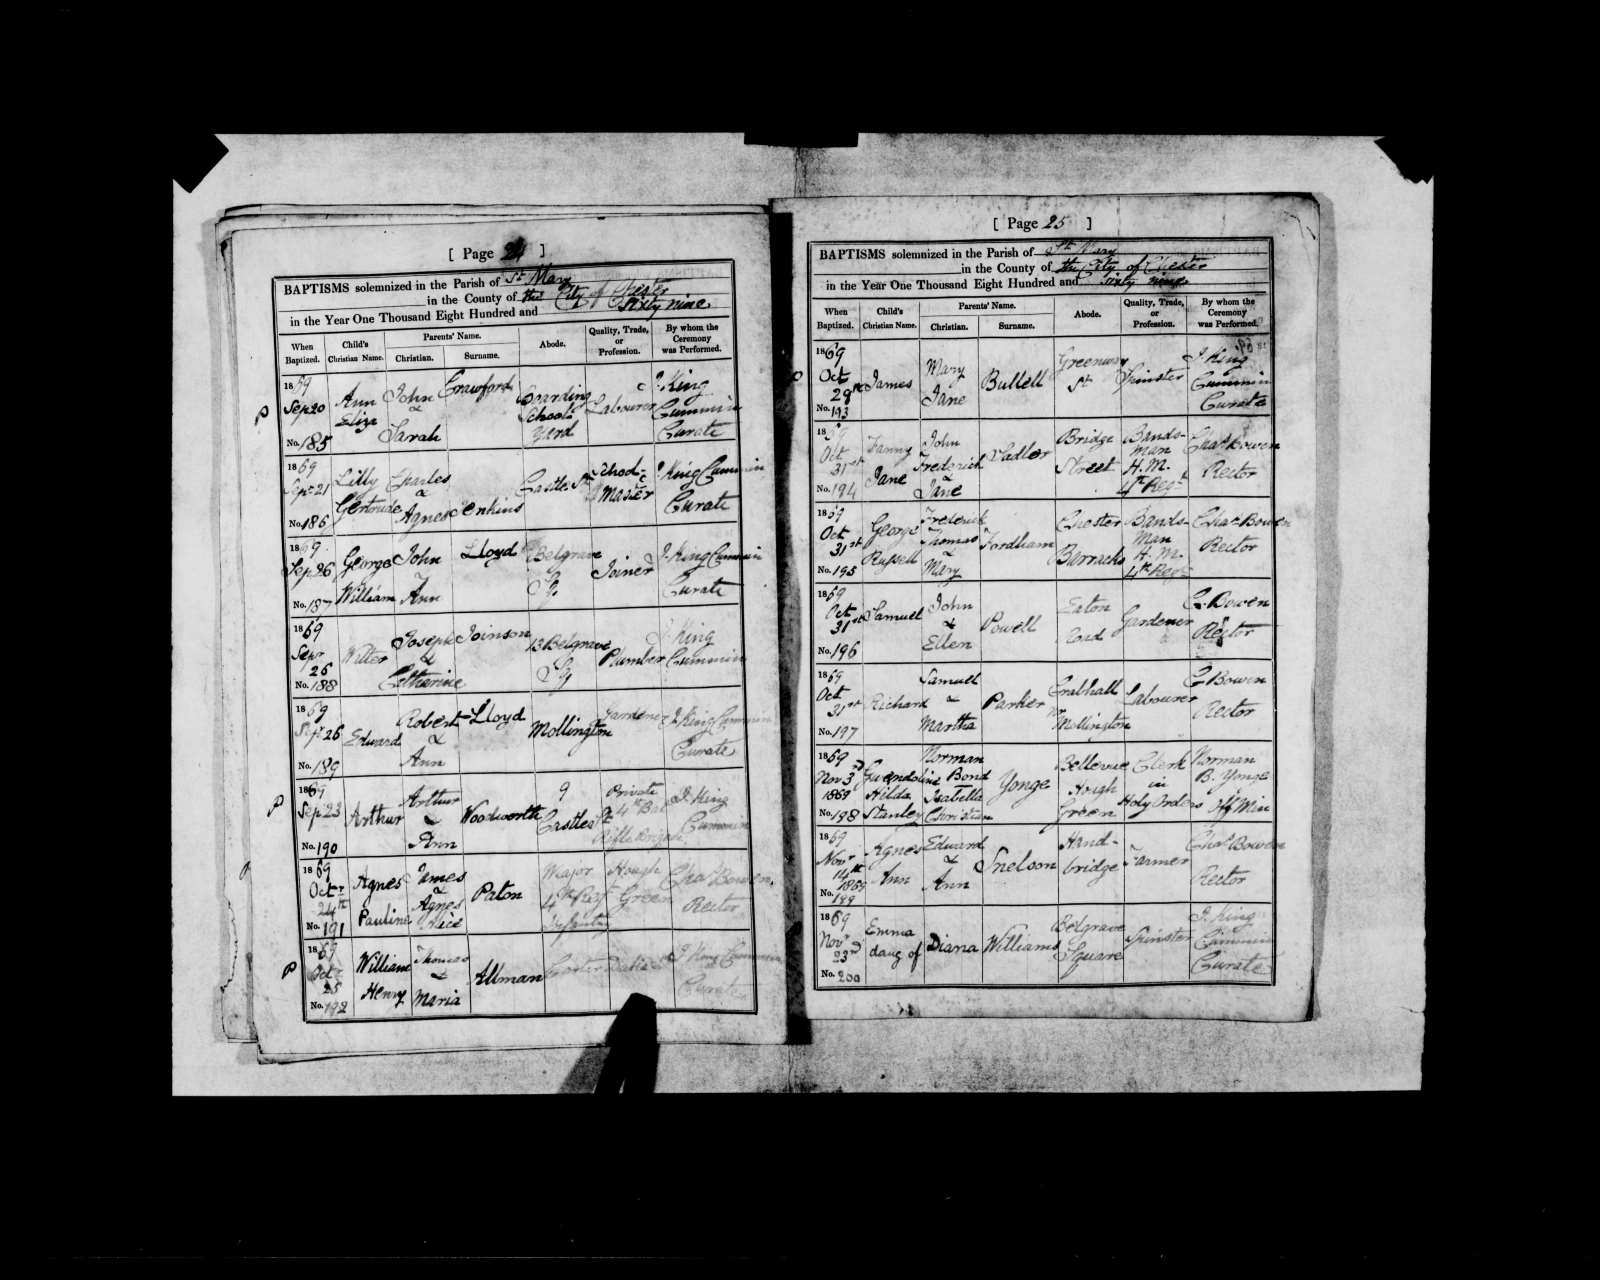 [ Page 24 ]
BAPTISMS solemnized in the Parish of St Mary
in the County of the City of Chester
in the Year One Thousand Eight Hundred and Sixty nine
When Baptized. Child's Christian Name. Parents' Name. Christian. Surname. Abode. Quality, Trade, or Profession. By whom the Ceremony was Performed.
1869 Ann John Crawford Boarding Labourer J. King
Sep 20 Eliza & School Cummin
No. 185 Sarah Yard Curate
1869 Lilly Charles Castle St School- J. King Cummin
Sept 21 Gertrude & Jenkins Master Curate
No. 186 Agnes
1869 George John Lloyd Belgrave Joiner J. King Cummin
Sep 26 William Ann Sq. Curate
No. 187
1869 Joseph Joinson 13 Belgrave Plumber J. King
Sepr & Sq Cummin
26 Catherine
No. 188
1869 Edward Robert Lloyd Mollington Gardener J. King Cummin
Sept 26 & Curate
No. 189 Ann
1869 Arthur Arthur Woodworth 9 Private J. King
Sep 23 & Castle St 4th Bat Cummin
No. 190 Ann Rifle Brigade
1869 Agnes James Paton Major Hough Chas Bowen
Octr & 4th Regt Green Rector
24th Pauline Agnes Infantry
No. 191 Alice
1869 William Thomas Allman J. King Cummin
Octr & Curate
25 Henry Maria
No. 192
[ Page 25 ]
BAPTISMS solemnized in the Parish of St Mary
in the County of the City of Chester
in the Year One Thousand Eight Hundred and Sixty nine
When Baptized. Child's Christian Name. Parents' Name. Christian. Surname. Abode. Quality, Trade, or Profession. By whom the Ceremony was Performed.
1869 James Mary Bullell Greenway Spinster J. King
Oct Jane St Cummin
29th Curate
No. 193
1869 Fanny John Sadler Bridge Bands- Chas Bowen
Oct Frederick Street Man Rector
31st Jane & H. M.
No. 194 Jane 4th Regt
1869 George Frederick Fordham Chester Bands- Chas Bowen
Oct Thomas Barracks Man Rector
31st Russell & H. M.
No. 195 Mary 4th Regt
1869 Samuel John Powell Eaton Gardener C. Bowen
Oct & Road Rector
31st Ellen
No. 196
1869 Richard Samuel Parker Crabhall Labourer C Bowen
Oct & nr Rector
31st Martha Mollington
No. 197
1869 Gwendoline Norman Yonge Bellevue Clerk Norman
Nov 3d Hilda Bond Hough in B. Yonge
1869 Stanley Isabella Green Holy Orders Off Min
No. 198 Christian
1869 Agnes Edward Snelson Hand- Farmer Chas Bowen
Novr Ann & bridge Rector
14th Ann
1869
No. 199
1869 Emma Diana Williams Belgrave Spinster J. King
Novr daug of Square Cummin
23d Curate
No. 200